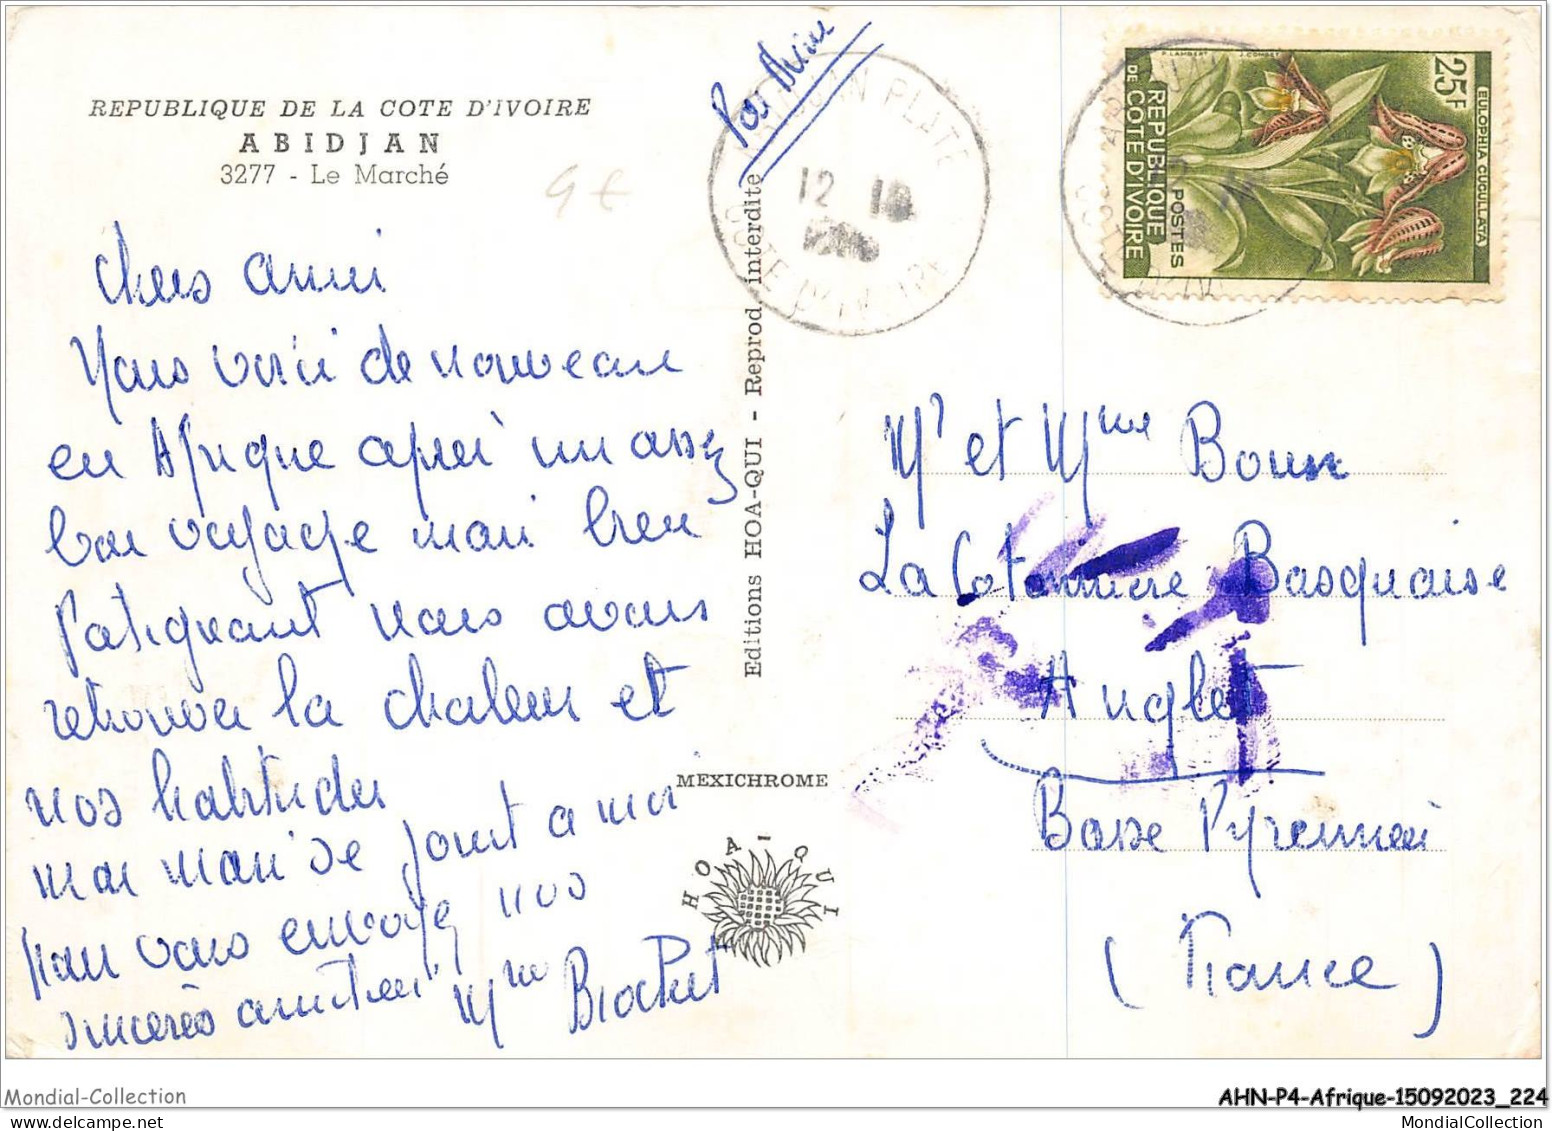 REPUBLIQUE DE LA COTE D'IVOIRE
ABIDJAN
3277 - Le Marché
4 €
Chers amis
Nous voici de nouveau
en Afrique après un assez
bon voyage mais bien
fatiguant nous avons
retrouver la chaleur et
nos habitudes
mon mari se joint a moi
pour vous envoyez nos
sincères amitiés Mme
Editions HOA-QUI - Reprod interdite
MEXICHROME
HOA-QUI
Par Avion
ABIDJAN PLATEAU
12 10
COTE D'IVOIRE
P. LAMBERT J. COMBET
25F
EULOPHIA CUCULLATA
POSTES
REPUBLIQUE
DE COTE D'IVOIRE
Mr et Mme
La Cotonnière Basquaise
Anglet
Basse Pyrennées
(France)
Mondial-Collection
AHN-P4-Afrique-15092023_224
MondialCollection